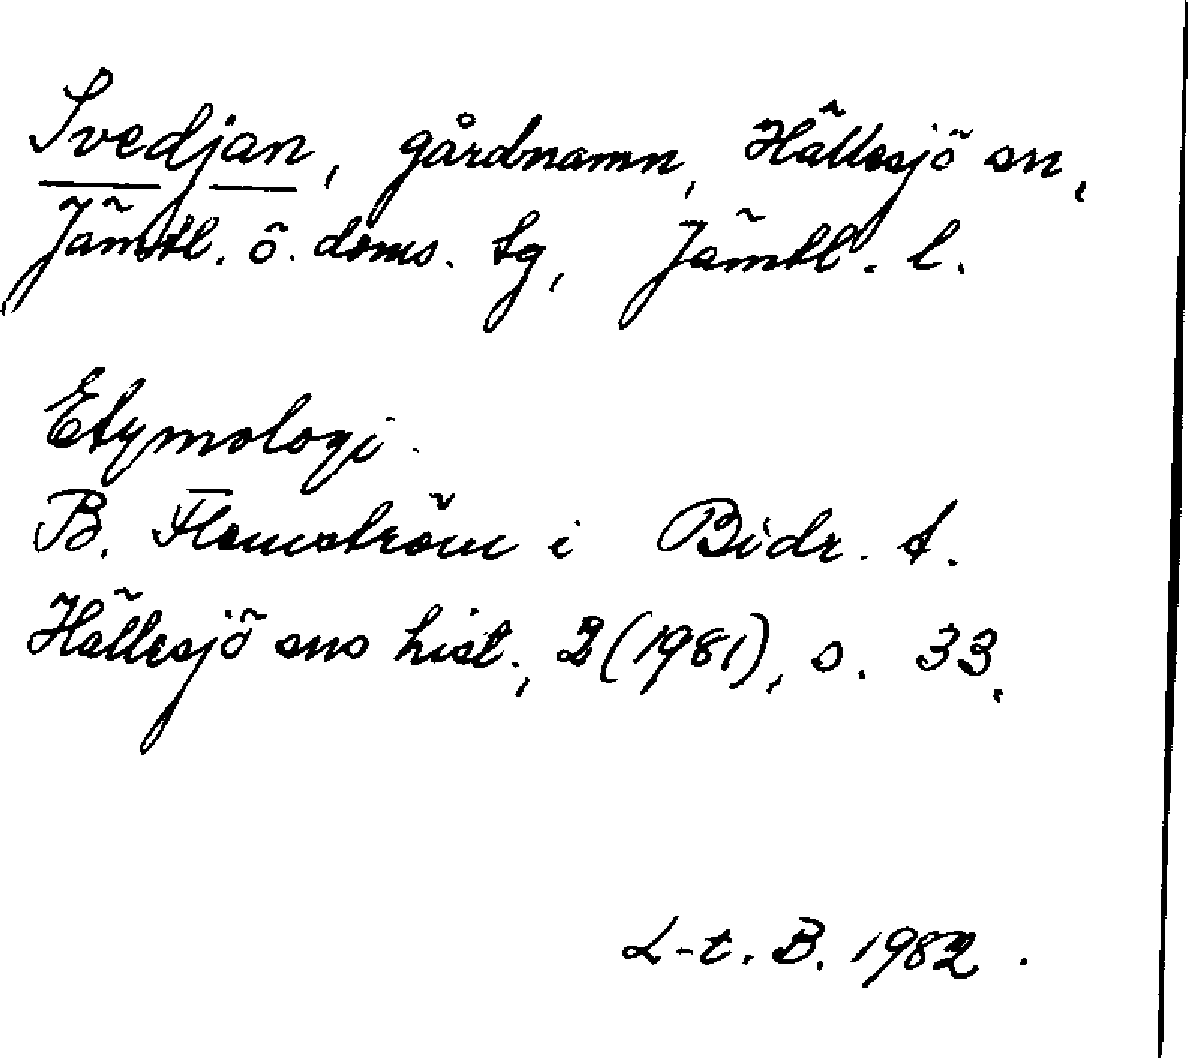 Svedjan, gårdnamn, Hällesjö sn,
Jämtl. ö. doms. tg, Jämtl. l.
Etymologi.
B. Flemström i Bidr. t.
Hällesjö sns hist., 2 (1981), s. 33.
L-t. B. 1982.